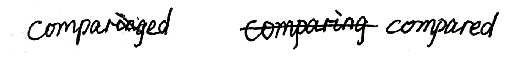 comparinged comparing compared